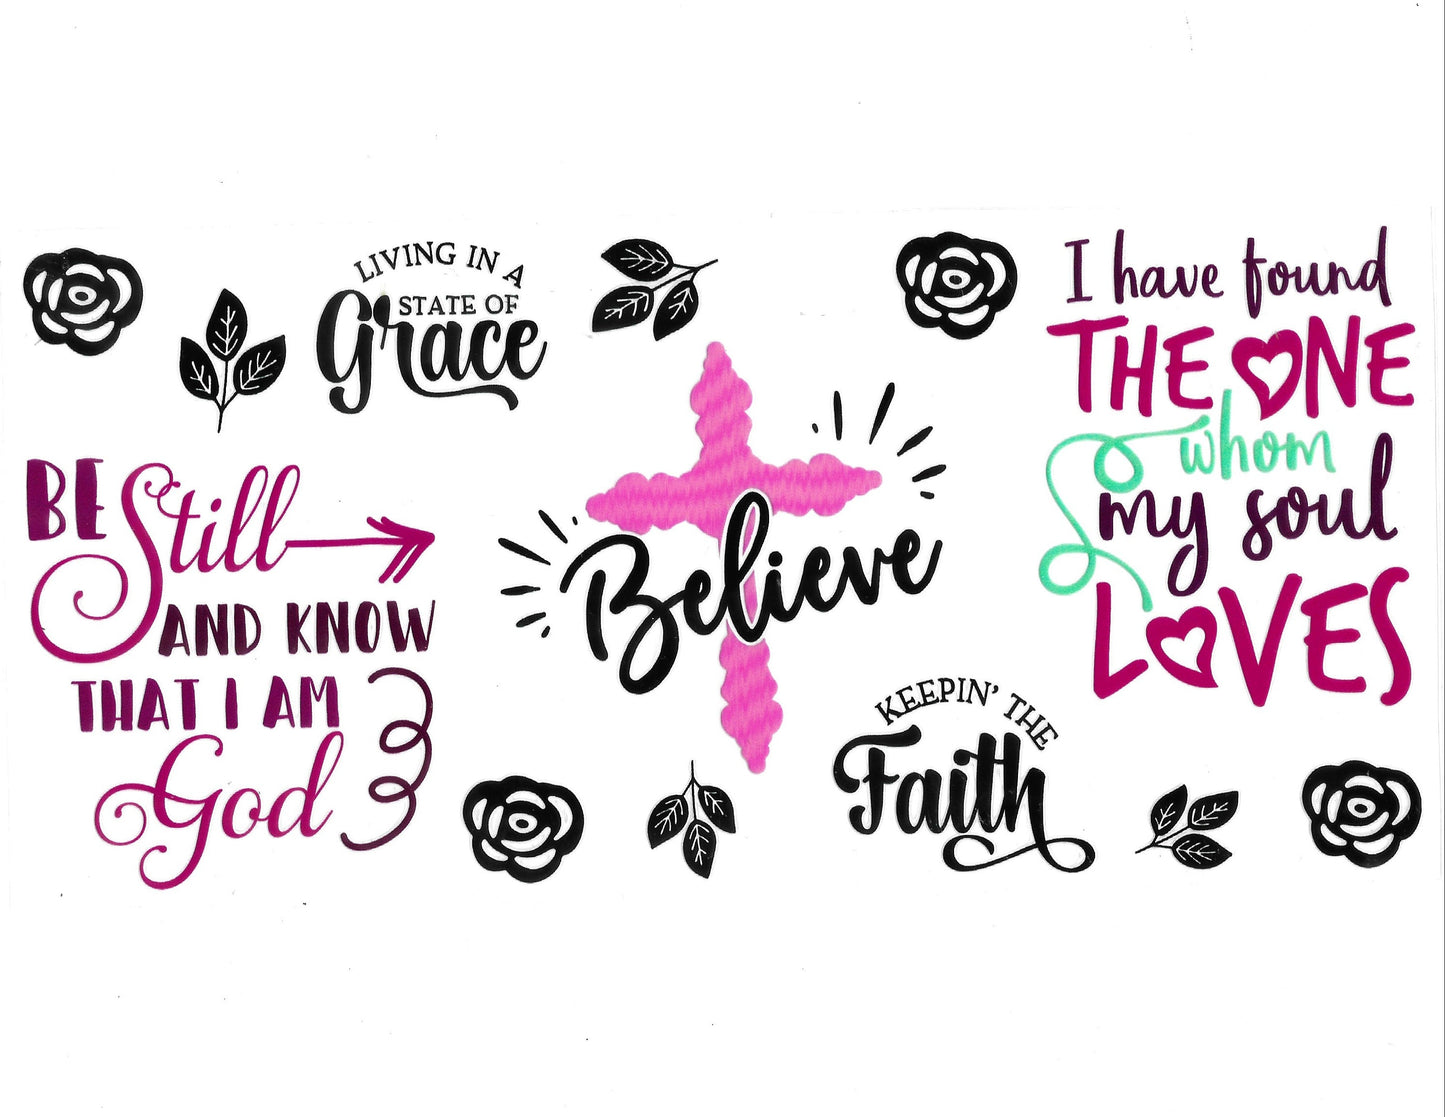 LIVING IN A
STATE OF
Grace
BE Still
AND KNOW
THAT I AM
God
Believe
KEEPIN' THE
Faith
I have found
THE ONE
whom
my soul
LOVES